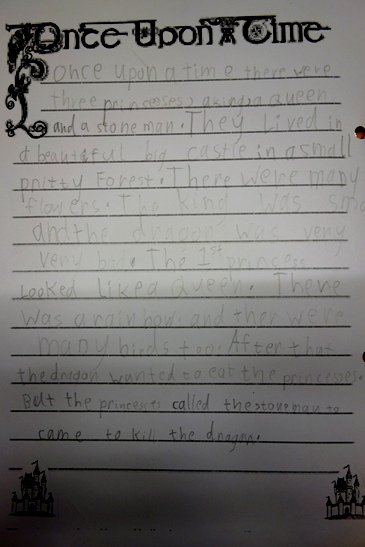 Once Upon A Time
Once upon a time there were
three princesses, a king, a queen
and a stone man. They lived in
a beautiful big castle in a small
pritty Forest. There were many
flowers. The king was
and the dragon was very
very bad. The 1st princess
Looked Liked a queen. There
was a rainbow. and ther were
many birds too. After that
the dragon wanted to eat the princesses.
But the princess called the stoneman to
came to kill the dragon.